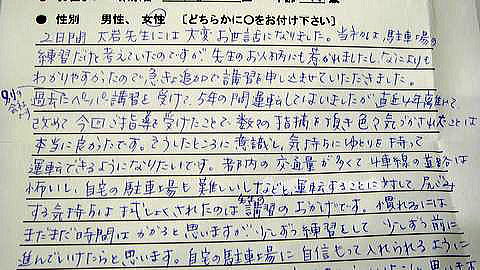 ● 性別　男性、女性　[どちらかに○をお付け下さい]
2日間 大岩先生には 大変お世話になりました。当初は、駐車場の
練習だけを考えていたのですが、先生のお人柄にも惹かれましたし、なによりも
わかりやすかったので、急きょ追加で講習を申し込ませていただきました。
過去にペーパー講習を受けて、5年の間運転してはいましたが、直近4年離れて
改めて今回ご指導を受けたことで、数々の指摘を頂き色々気づかされたことは
本当に良かったです。そうしたところに意識し、気持ちにゆとりを持って
運転できるようになりたいです。都内の交通量が多くて4車線の道路は
怖いし、自宅の駐車場も難しいしなどと、運転することに対して、尻ごみ
する気持ちは 払しょくされたのは 講習のおかげです。慣れるには
まだまだ時間は かかると思いますが 少しずつ練習をして 少しずつ前に
進んでいけたらと思います。自宅の駐車場に 自信もって入れられるように